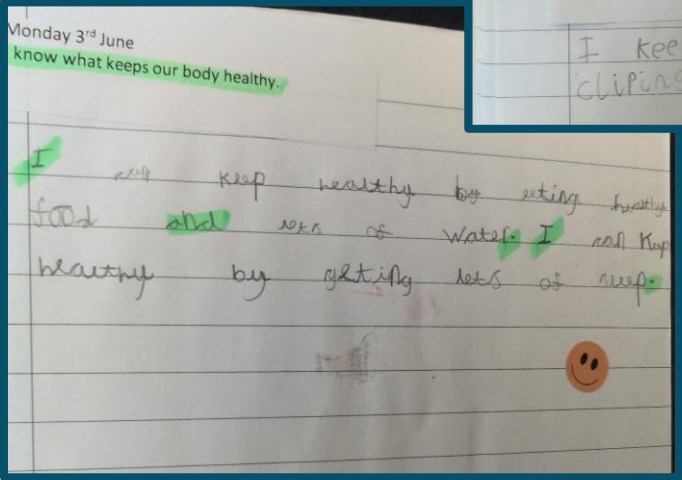 Monday 3rd June
know what keeps our body healthy.
I can keep healthy by eeting healthy
food and lots of water. I can keep
healthy by geting lots of sleep.
I kee
cliping